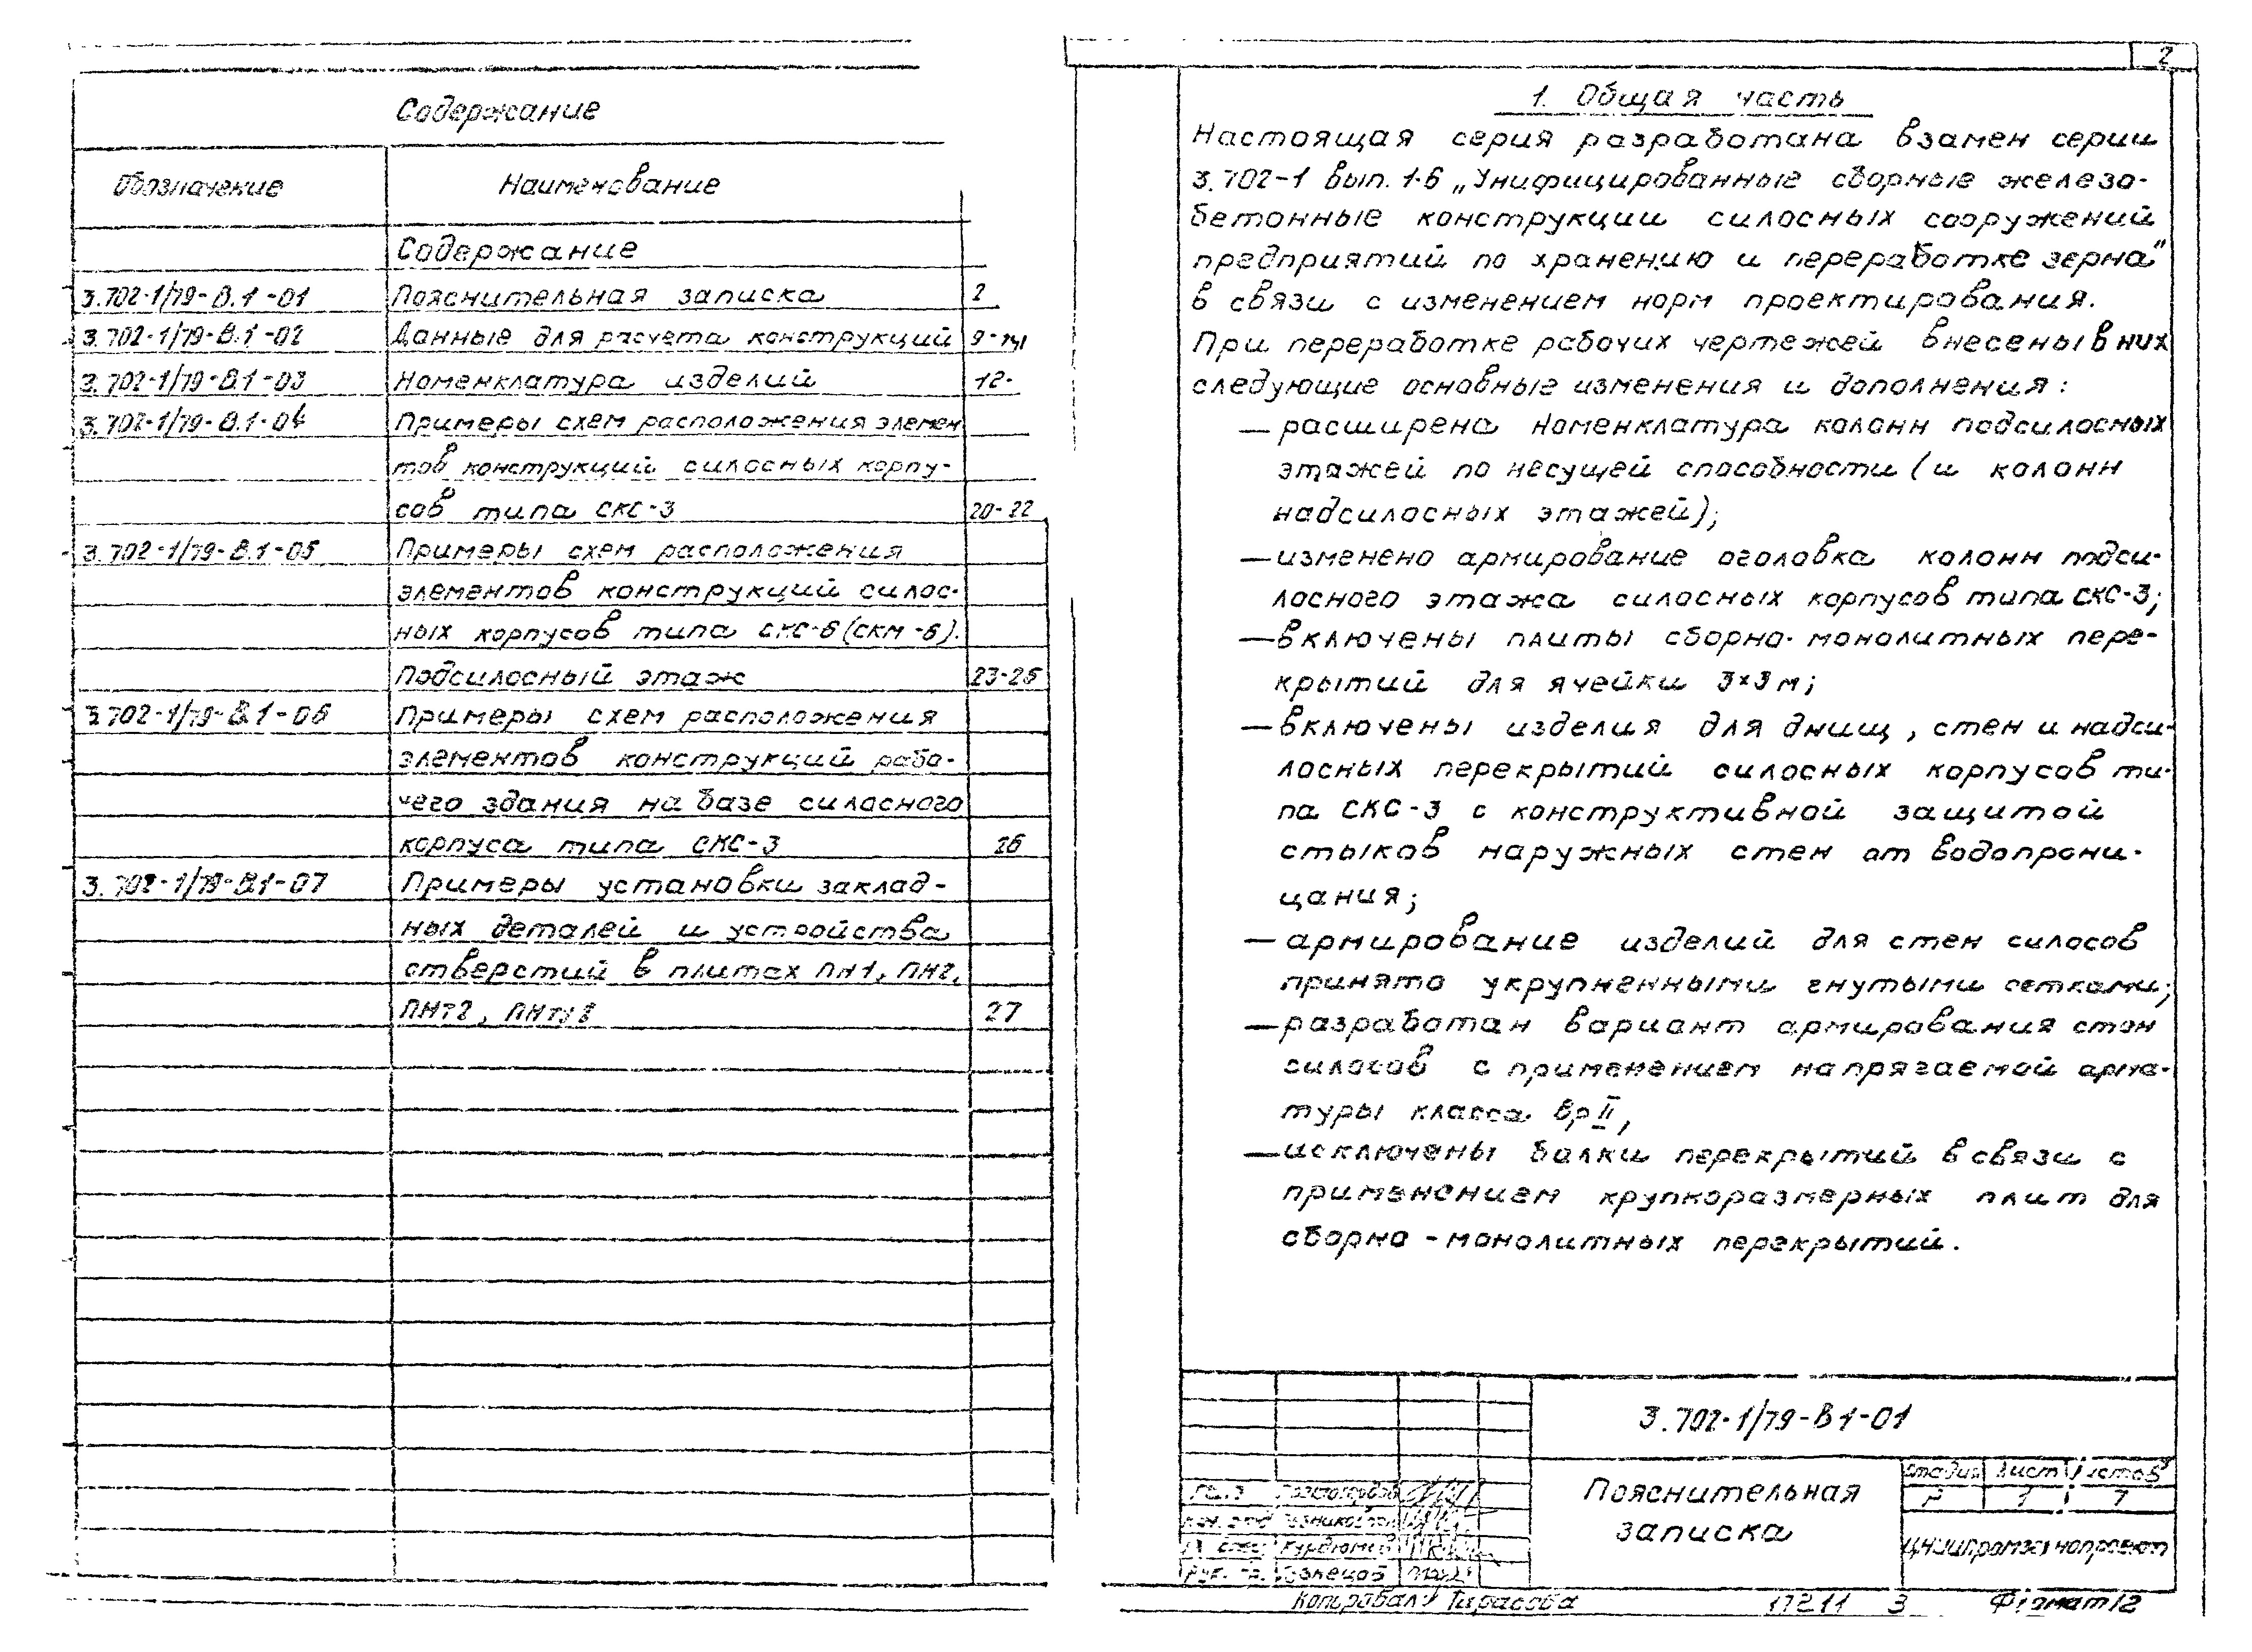 Содержание
Обозначение Наименование
Содержание
3.702-1/79-В.1-01 Пояснительная записка 2
3.702-1/79-В.1-02 Данные для расчета конструкций 9-11
3.702-1/79-В.1-03 Номенклатура изделий 12-
3.702-1/79-В.1-04 Примеры схем расположения элемен
тов конструкций силосных корпу-
сов типа СКС-3 20-22
3.702-1/79-В.1-05 Примеры схем расположения
элементов конструкций силос-
ных корпусов типа СКС-6 (СКМ-6).
Подсилосный этаж 23-25
3.702-1/79-В.1-06 Примеры схем расположения
элементов конструкций рабо-
чего здания на базе силосного
корпуса типа СКС-3 26
3.702-1/79-В.1-07 Примеры установки заклад-
ных деталей и устройства
отверстий в плитах ПН1, ПН2,
ПНТ2, 27
2
1. Общая часть
Настоящая серия разработана взамен серии
3.702-1 вып. 1-6 „Унифицированные сборные железо-
бетонные конструкции силосных сооружений
предприятий по хранению и переработке зерна"
в связи с изменением норм проектирования.
При переработке рабочих чертежей внесены в них
следующие основные изменения и дополнения:
— расширена номенклатура колонн подсилосных
этажей по несущей способности (и колонн
надсилосных этажей);
— изменено армирование оголовка колонн подси-
лосного этажа силосных корпусов типа СКС-3;
— включены плиты сборно-монолитных пере-
крытий для ячейки 3×3 м;
— включены изделия для днищ, стен и надси-
лосных перекрытий силосных корпусов ти-
па СКС-3 с конструктивной защитой
стыков наружных стен от водопрони-
цания;
— армирование изделий для стен силосов
принято укрупненными гнутыми сетками;
— разработан вариант армирования стен
силосов с применением напрягаемой арма-
туры класса Вр II,
— исключены балки перекрытий в связи с
применением крупноразмерных плит для
сборно-монолитных перекрытий.
3.702-1/79-В1-01
Пояснительная
записка
Стадия Лист Листов
Р 1 7
ЦНИИпромзернопроект
Нач. отд
Рук. гр.
Копировал: Тарасова 17211 3 Формат 12